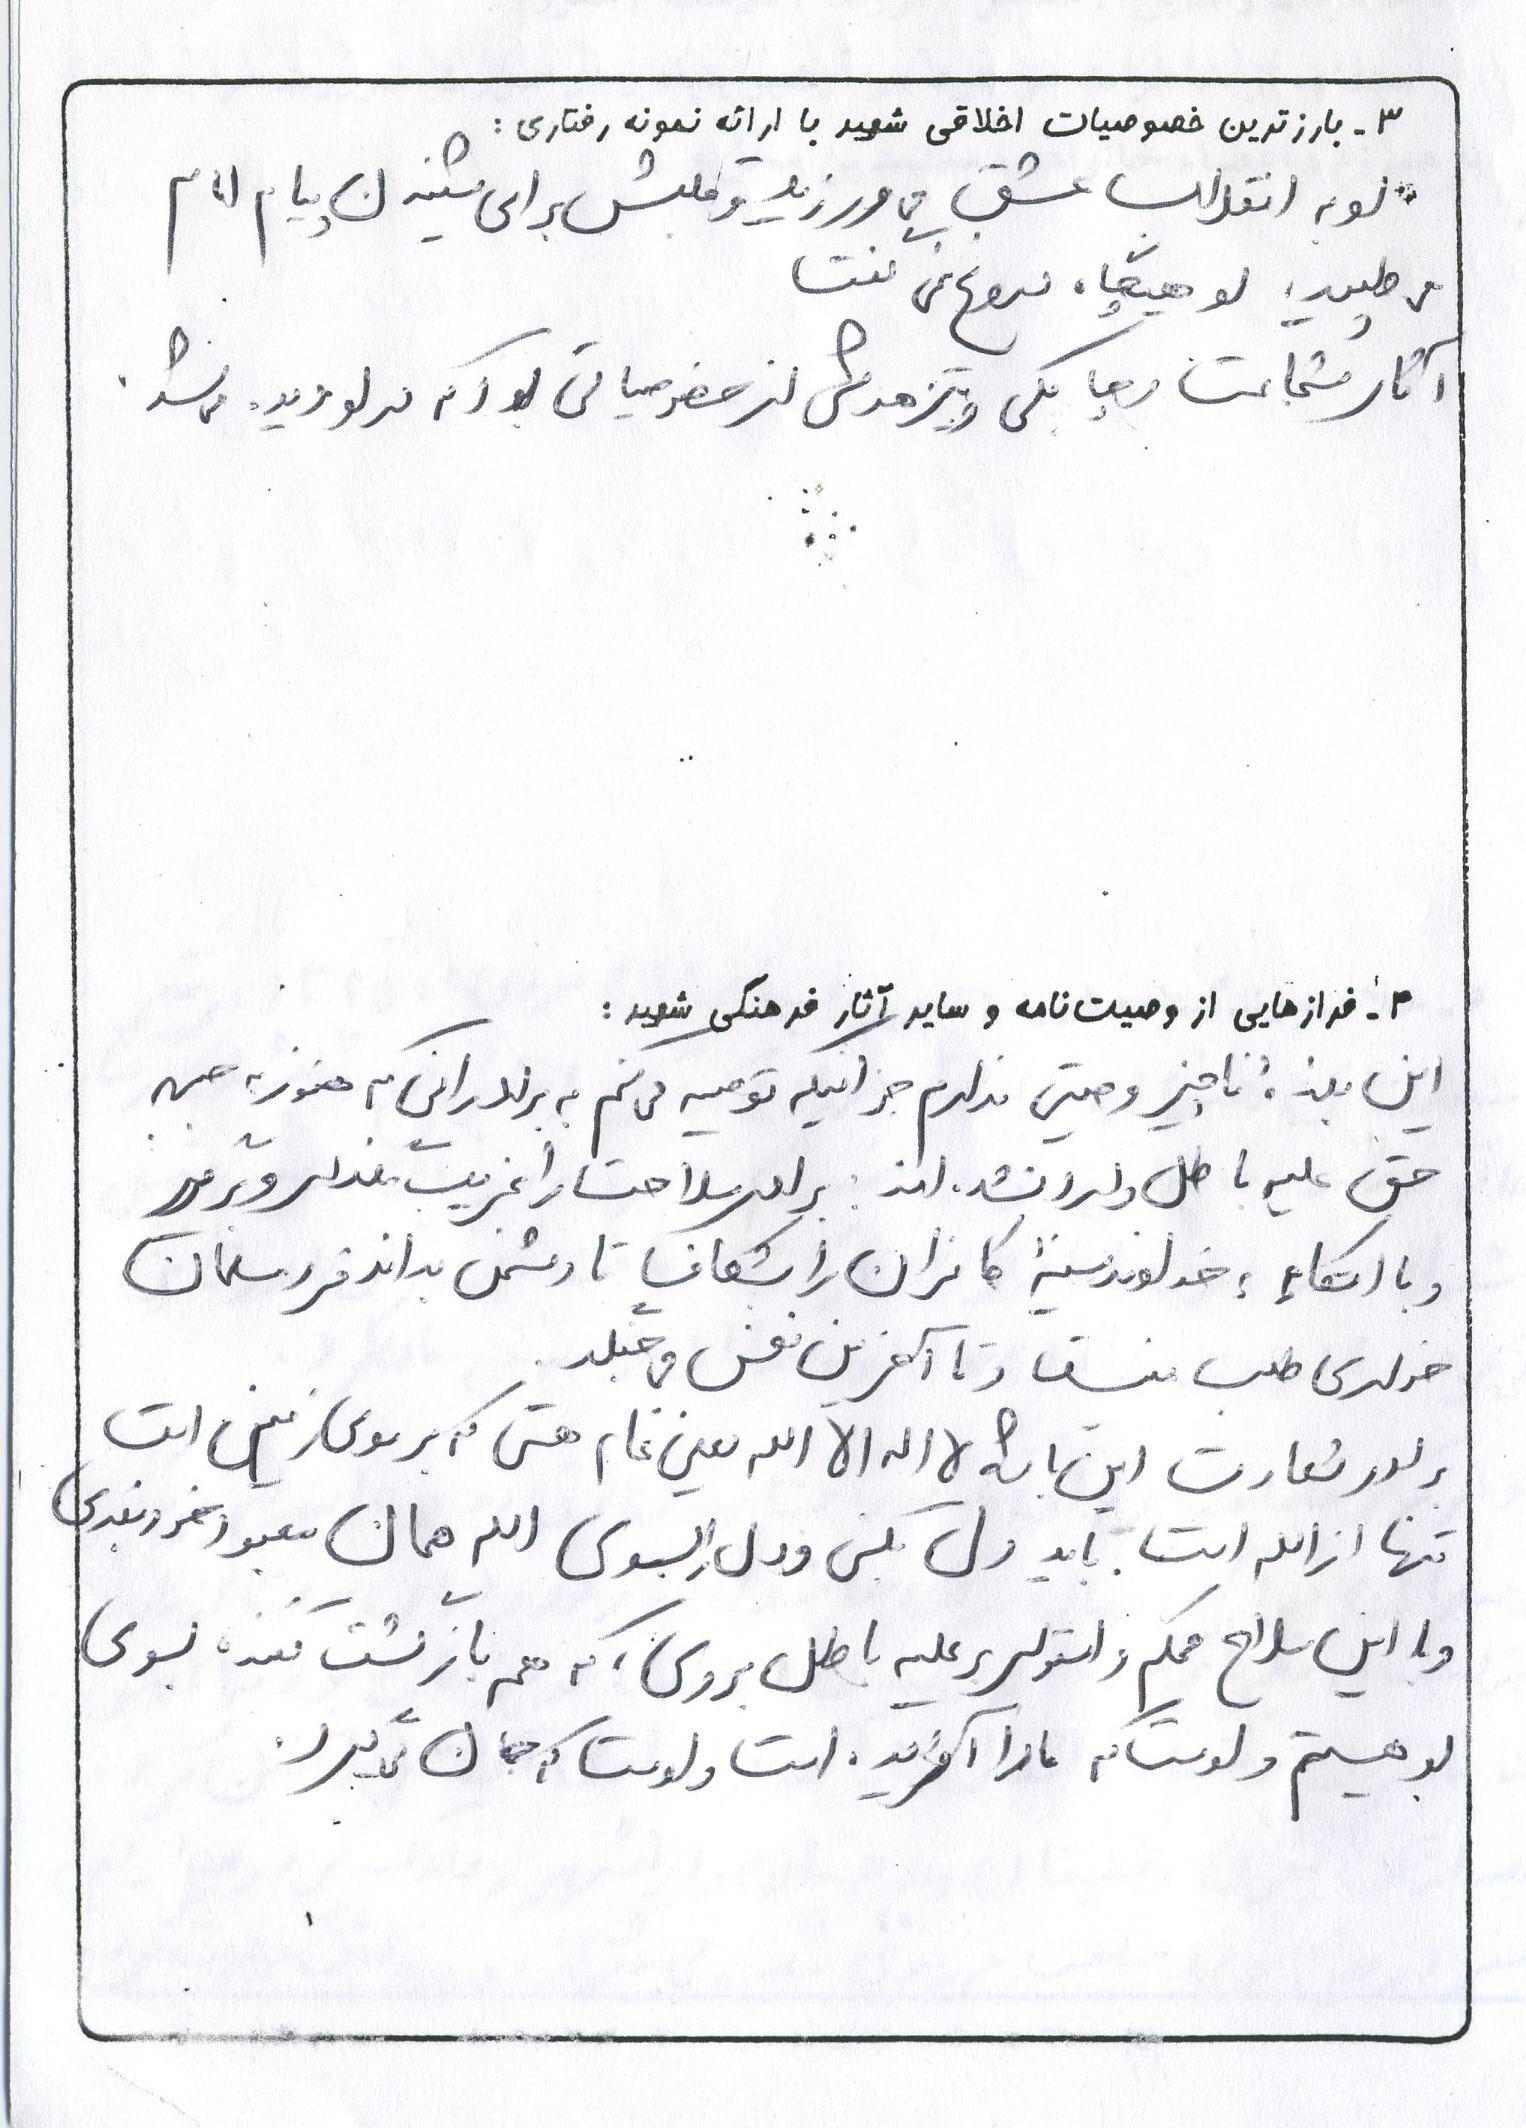 ۳- بارزترین خصوصیات اخلاقی شهید با ارائه نمونه رفتاری :
او به انقلاب عشق می ورزید و قلبش برای شنیدن پیام امام
می طپید، او هیچگاه دروغ نمی گفت
آثار شجاعت و چابکی و تیزهوشی از خصوصیاتی بود که در او دیده می شد.
۴- فرازهایی از وصیت نامه و سایر آثار فرهنگی شهید :
این بنده ناچیز وصیتی ندارم جز اینکه توصیه می کنم به برادرانی که هنوز به جبهه
حق علیه باطل وارد نشده اند : برادر سلاحت را غریب نگذار و برگیر
و با اتکاء به خداوند سینه کافران را بشکاف تا دشمن بداند فرد مسلمان
طلب نیست و تا آخرین نفس می جنگد.
برادر شعارت این باشد لا اله الا الله یعنی تمام هستی که بر روی زمین است
تنها از الله است. باید دل بکنی و دل را بسوی الله همان معبود خود بندی
و با این سلاح محکم و استوار بر علیه باطل بروی، که همه بازگشت کننده بسوی
او هستیم و اوست که ما را آفریده است و اوست که جان می گیرد.